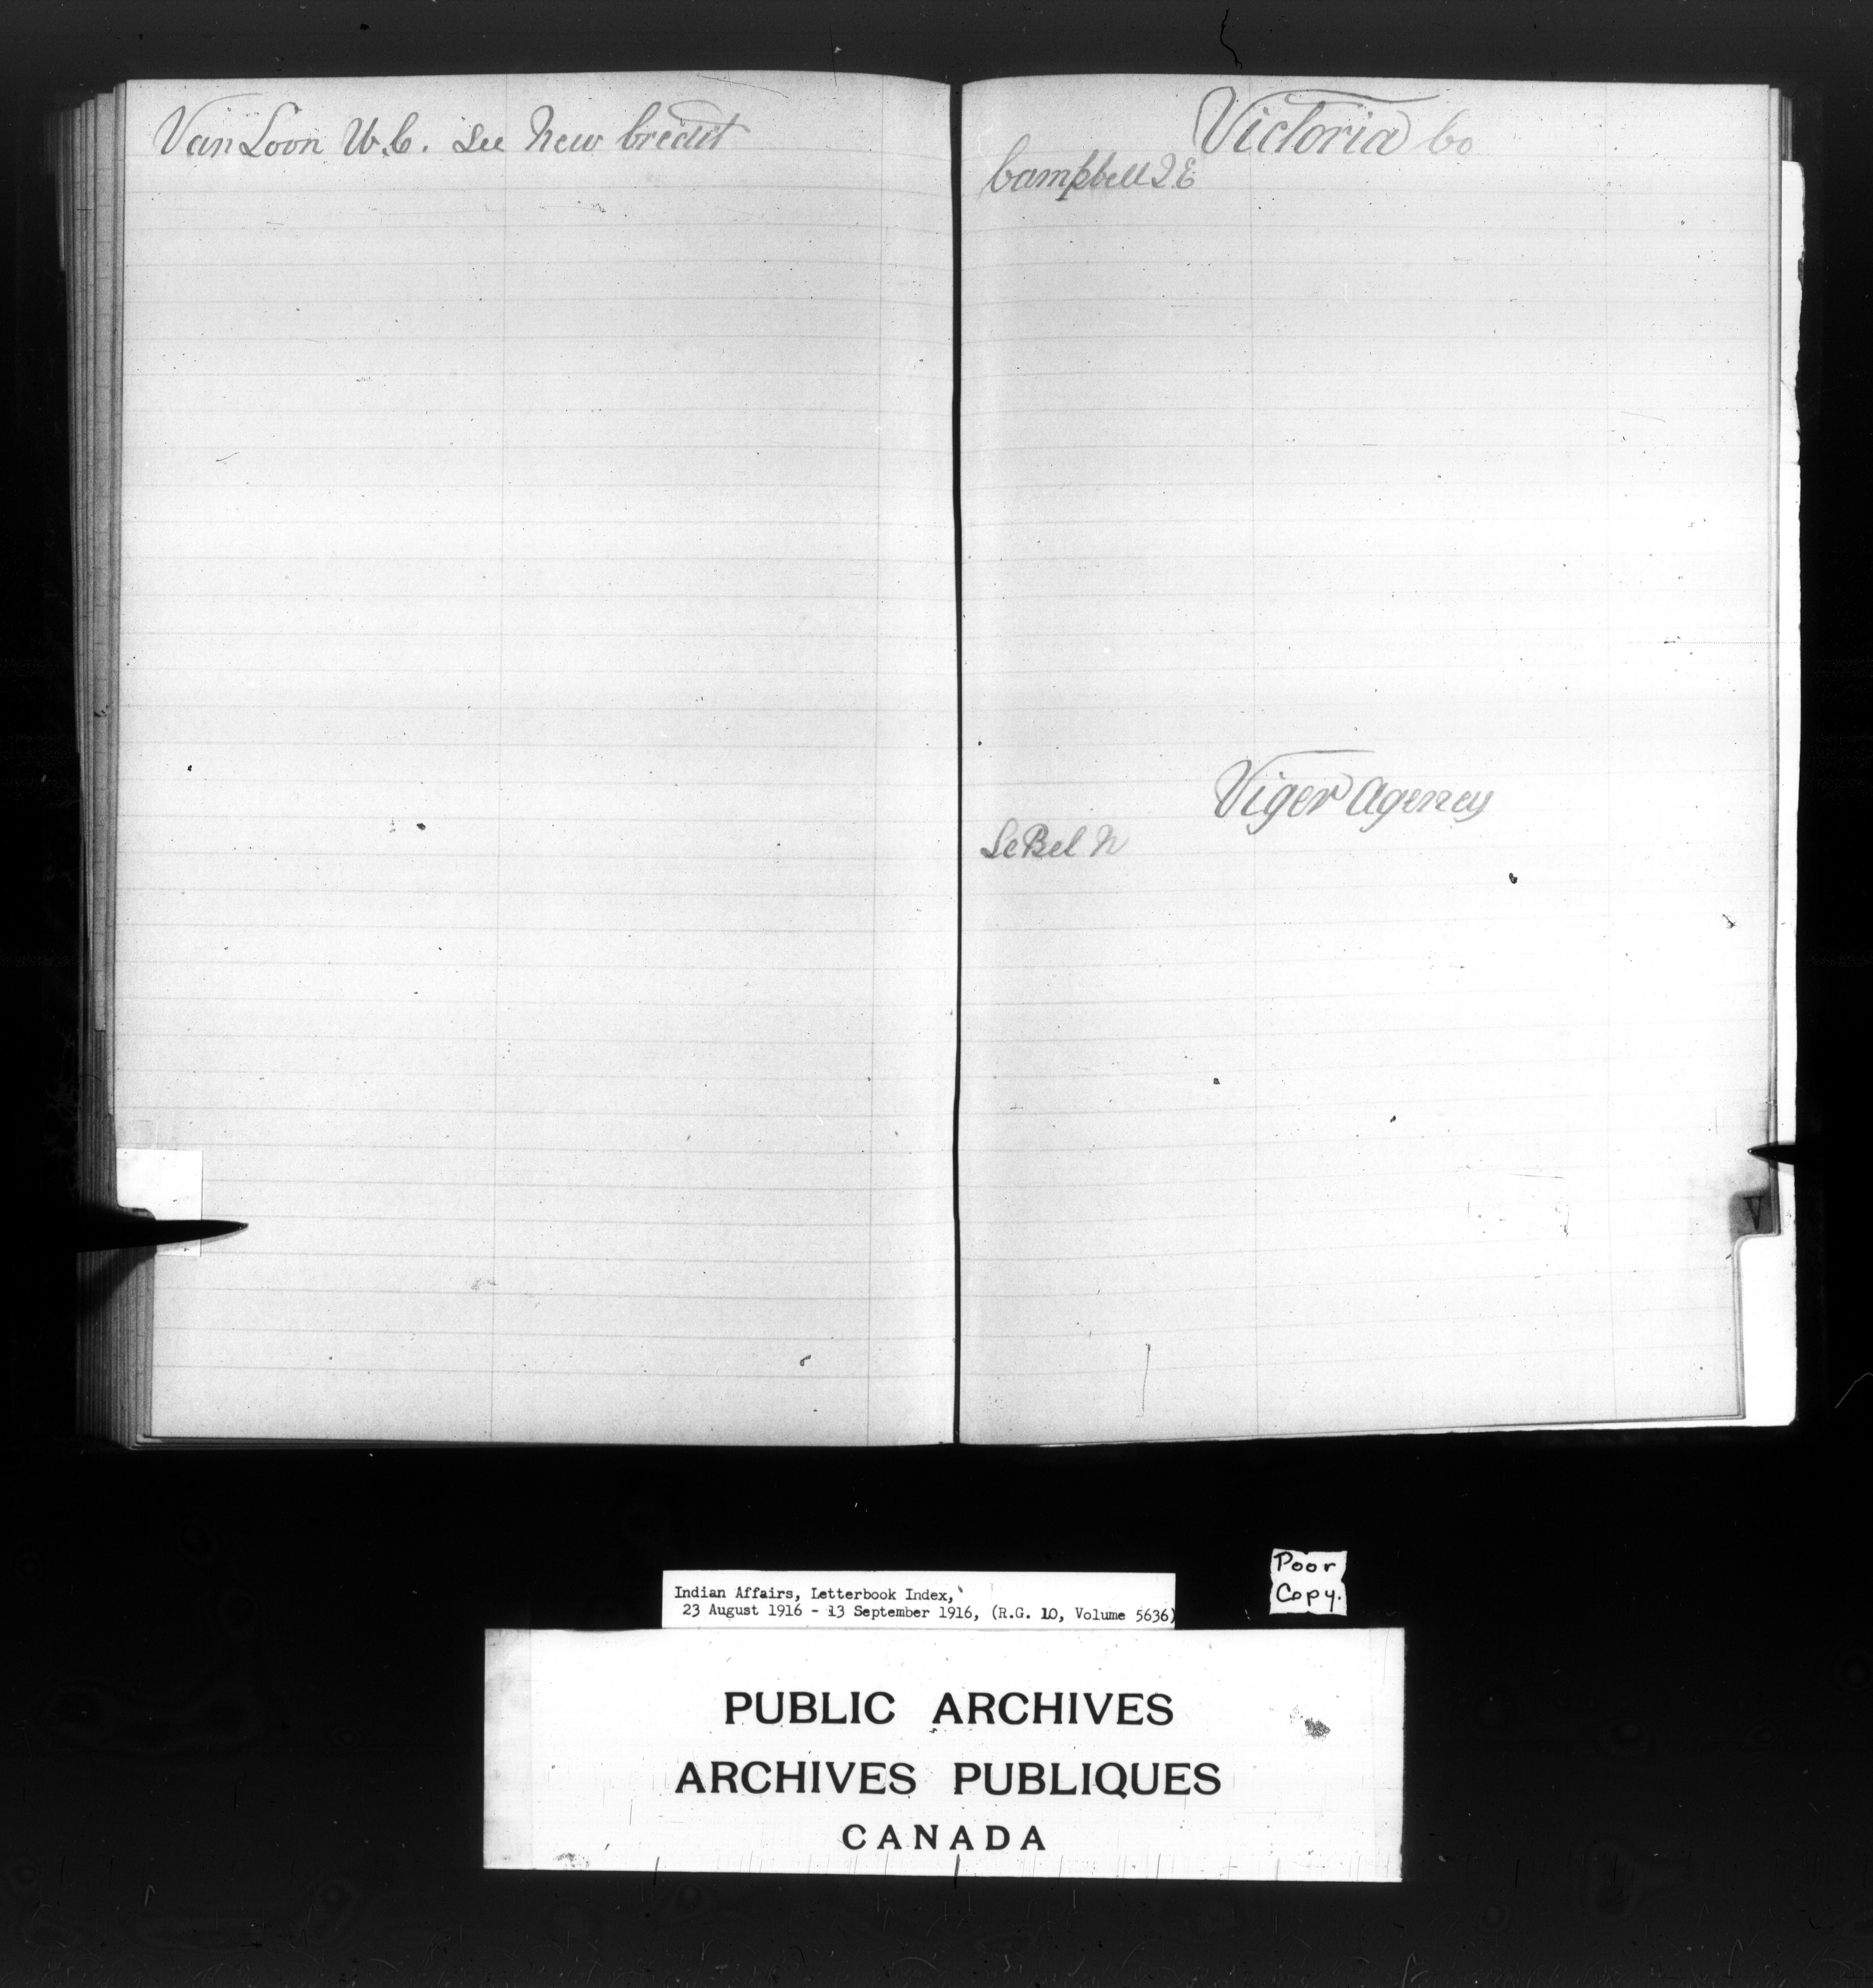 Van Loon W.C. See New Credit
Victoria Co
Campbell J E
Viger Agency
LeBel N
V
Poor
Copy.
Indian Affairs, Letterbook Index,
23 August 1916 - 13 September 1916, (R.G. 10, Volume 5636)
PUBLIC ARCHIVES
ARCHIVES PUBLIQUES
CANADA